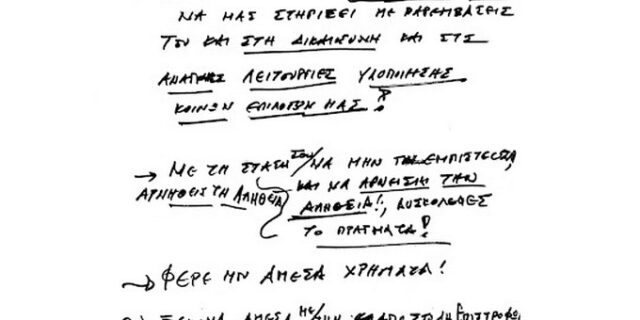 ΝΑ ΜΑΣ ΣΤΗΡΙΞΕΙ ΜΕ ΠΑΡΕΜΒΑΣΕΙΣ
ΤΟΥ ΚΑΙ ΣΤΗ ΔΙΚΑΙΟΣΥΝΗ ΚΑΙ ΣΤΙΣ
ΛΕΙΤΟΥΡΓΙΕΣ ΥΛΟΠΟΙΗΣΗΣ
ΚΟΙΝΩΝ ΕΠΙΛΟΓΩΝ ΜΑΣ!
→ ΜΕ ΤΗ ΣΤΑΣΗ ΣΟΥ/ΝΑ ΜΗΝ
ΚΑΙ ΝΑ ΑΡΝΕΙΣΑΙ ΤΗΝ
ΑΡΝΗΘΕΙΣ ΤΗ ΑΛΗΘΕΙΑ
ΑΛΗΘΕΙΑ!, ΔΥΣΚΟΛΕΨΕΣ
ΤΟ ΠΡΑΓΜΑΤΑ!
→ ΦΕΡΕ ΜΗΝ ΑΜΕΣΑ ΧΡΗΜΑΤΑ!
ΑΜΕΣΑ ΜΕ/